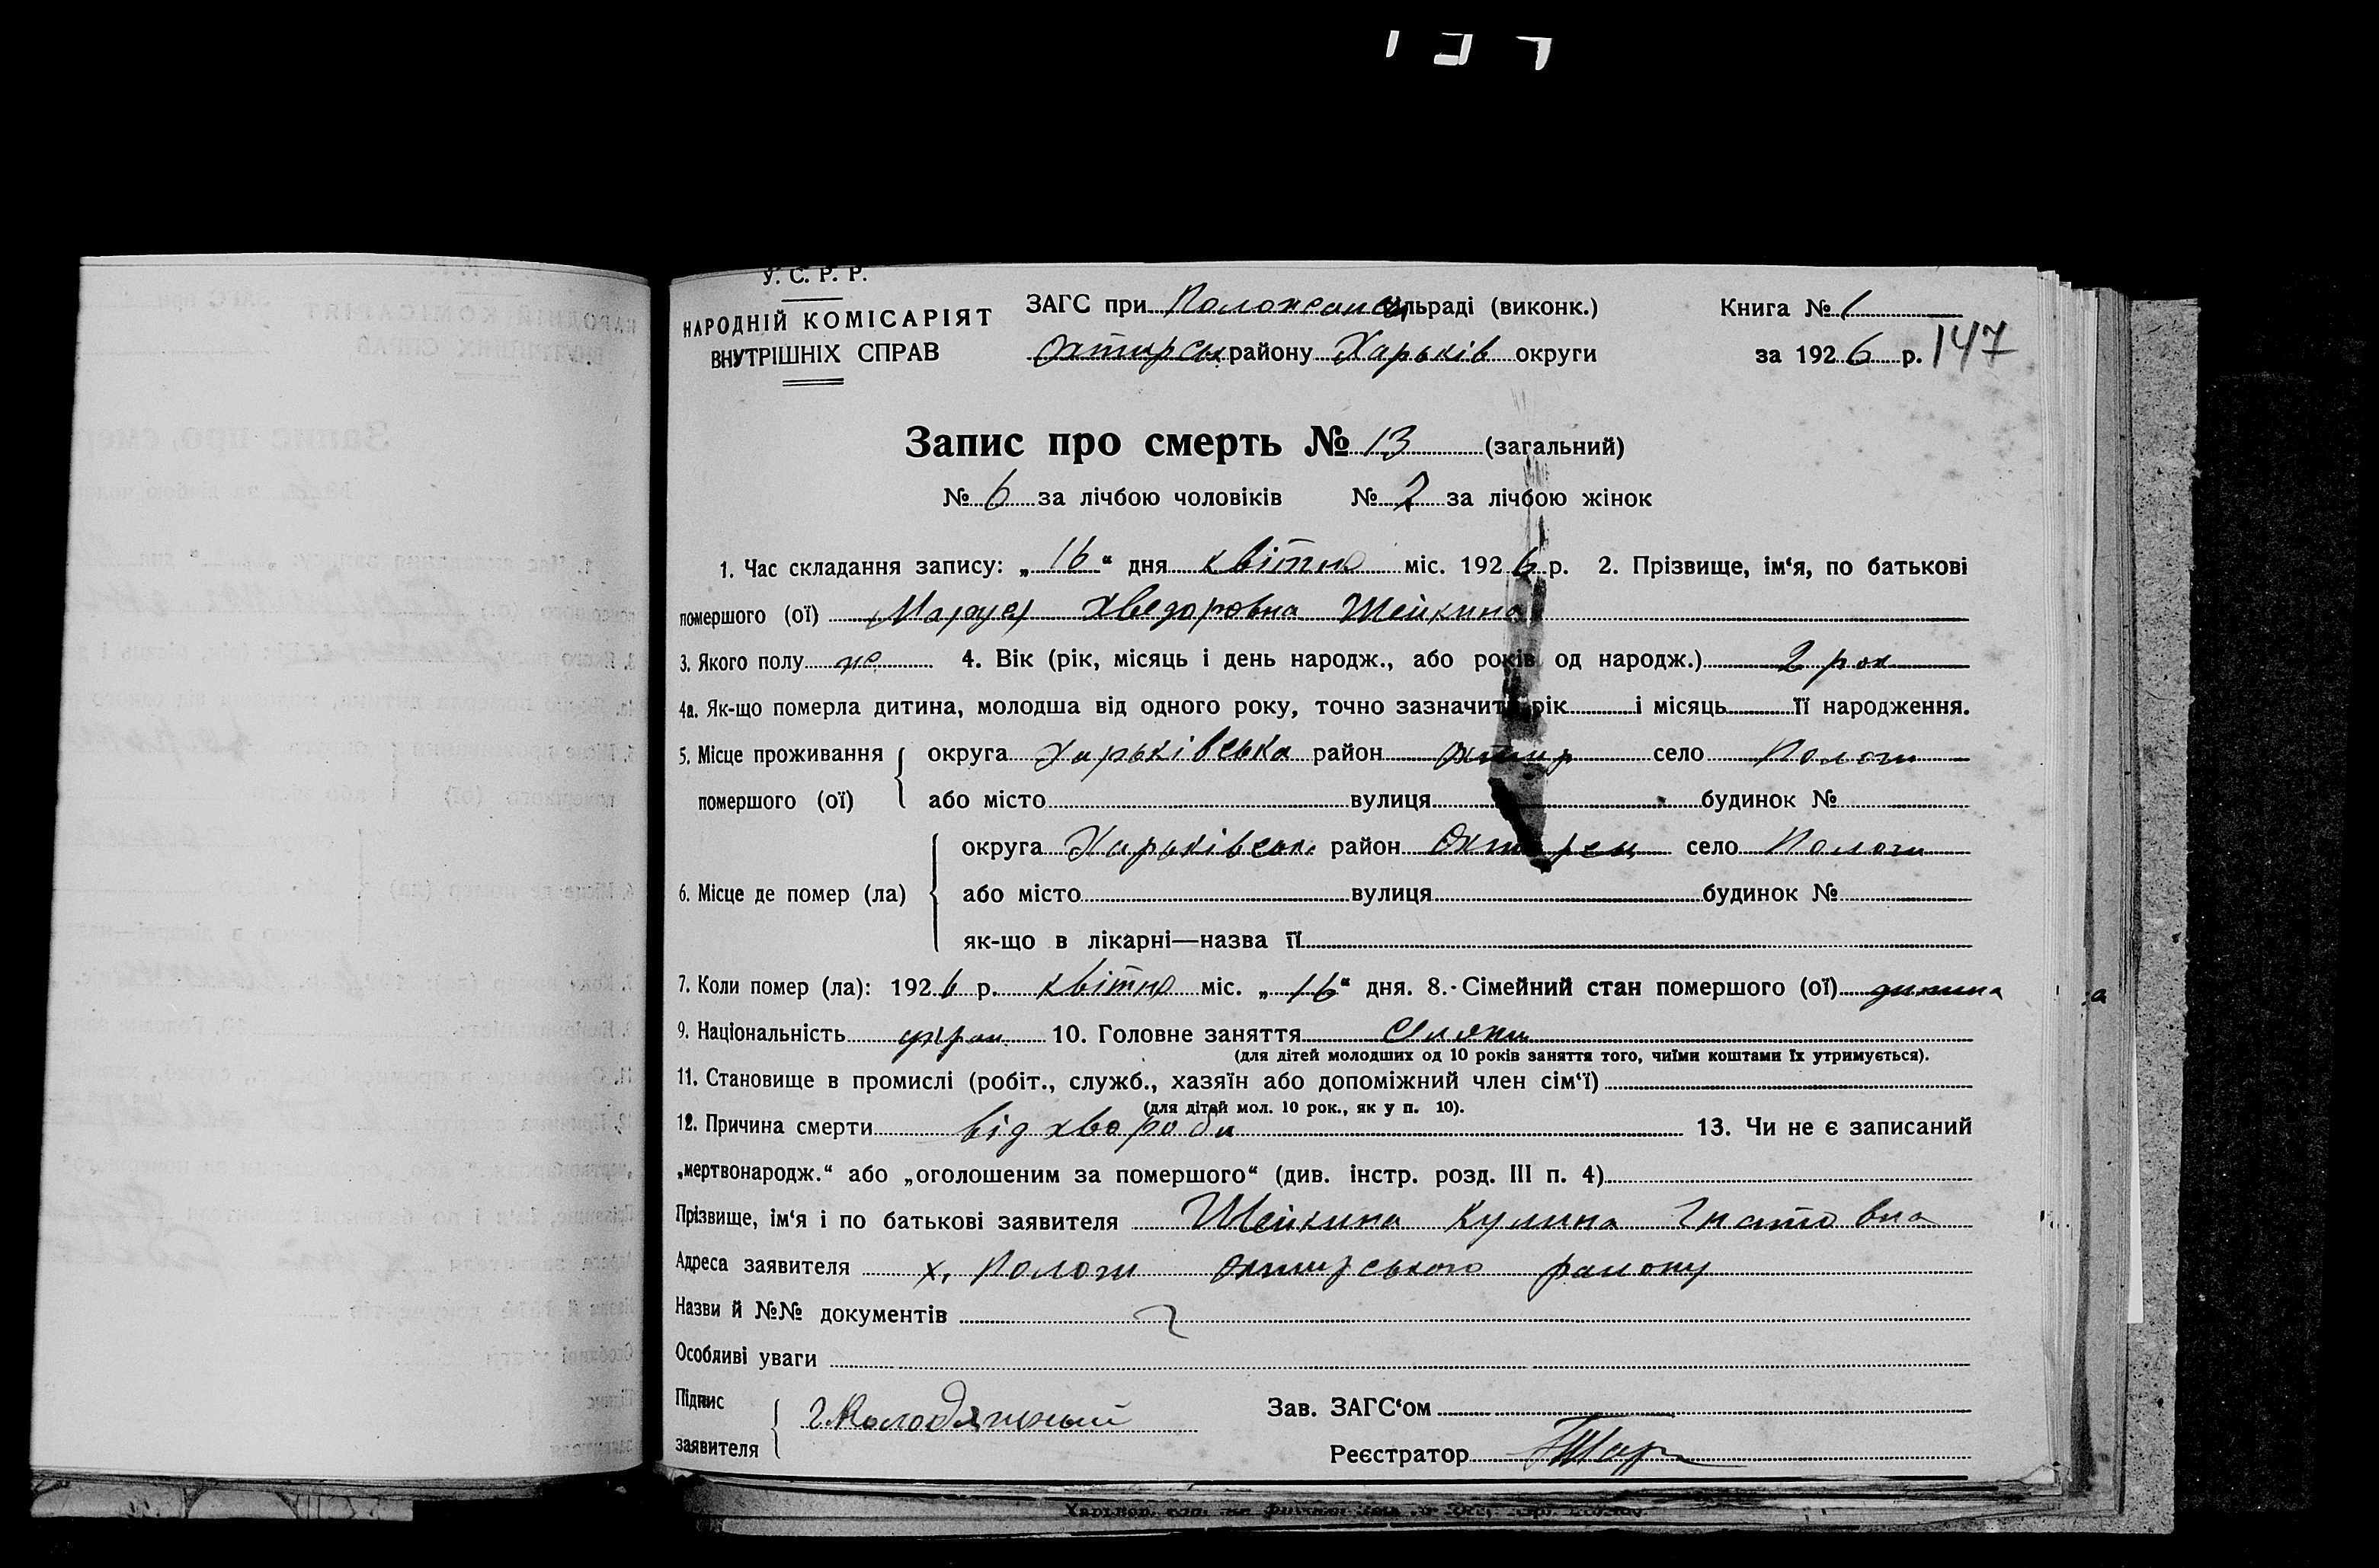 У. С. Р. Р.
НАРОДНІЙ КОМІСАРІЯТ
ВНУТРІШНІХ СПРАВ
ЗАГС при сільраді (виконк.)
району Харьків округи
Книга № 1
за 1926 р. 147
Запис про смерть № 13 (загальний)
№ 6 за лічбою чоловіків № 7 за лічбою жінок
1. Час складання запису: „16“ дня квітня міс. 1926 р. 2. Прізвище, ім‘я, по батькові
помершого (ої) Маруся Хведоровна Шейкина
3. Якого полу ж. 4. Вік (рік, місяць і день народж., або років од народж.) 2 рок
4а. Як-що померла дитина, молодша від одного року, точно зазначити рік і місяць її народження.
5. Місце проживання помершого (ої) округа Харьківська район Охтир село Пологи
або місто вулиця будинок №
6. Місце де помер (ла) округа Харьківськ район село Пологи
або місто вулиця будинок №
як-що в лікарні—назва її
7. Коли помер (ла): 1926 р. квітня міс. „16“ дня. 8. Сімейний стан помершого (ої) дитина
9. Національність украи. 10. Головне заняття
(для дітей молодших од 10 років заняття того, чиїми коштами їх утримується).
11. Становище в промислі (робіт., служб., хазяїн або допоміжний член сім‘ї)
(для дітей мол. 10 рок., як у п. 10).
12. Причина смерти від хвороби 13. Чи не є записаний
„мертвонародж.“ або „оголошеним за помершого“ (див. інстр. розд. III п. 4)
Прізвище, ім‘я і по батькові заявителя Шейкина Кулина Гнатовна
Адреса заявителя х. Пологи Охтирського району
Назви й №№ документів
Особливі уваги
Підпис
заявителя
Зав. ЗАГС‘ом
Реєстратор